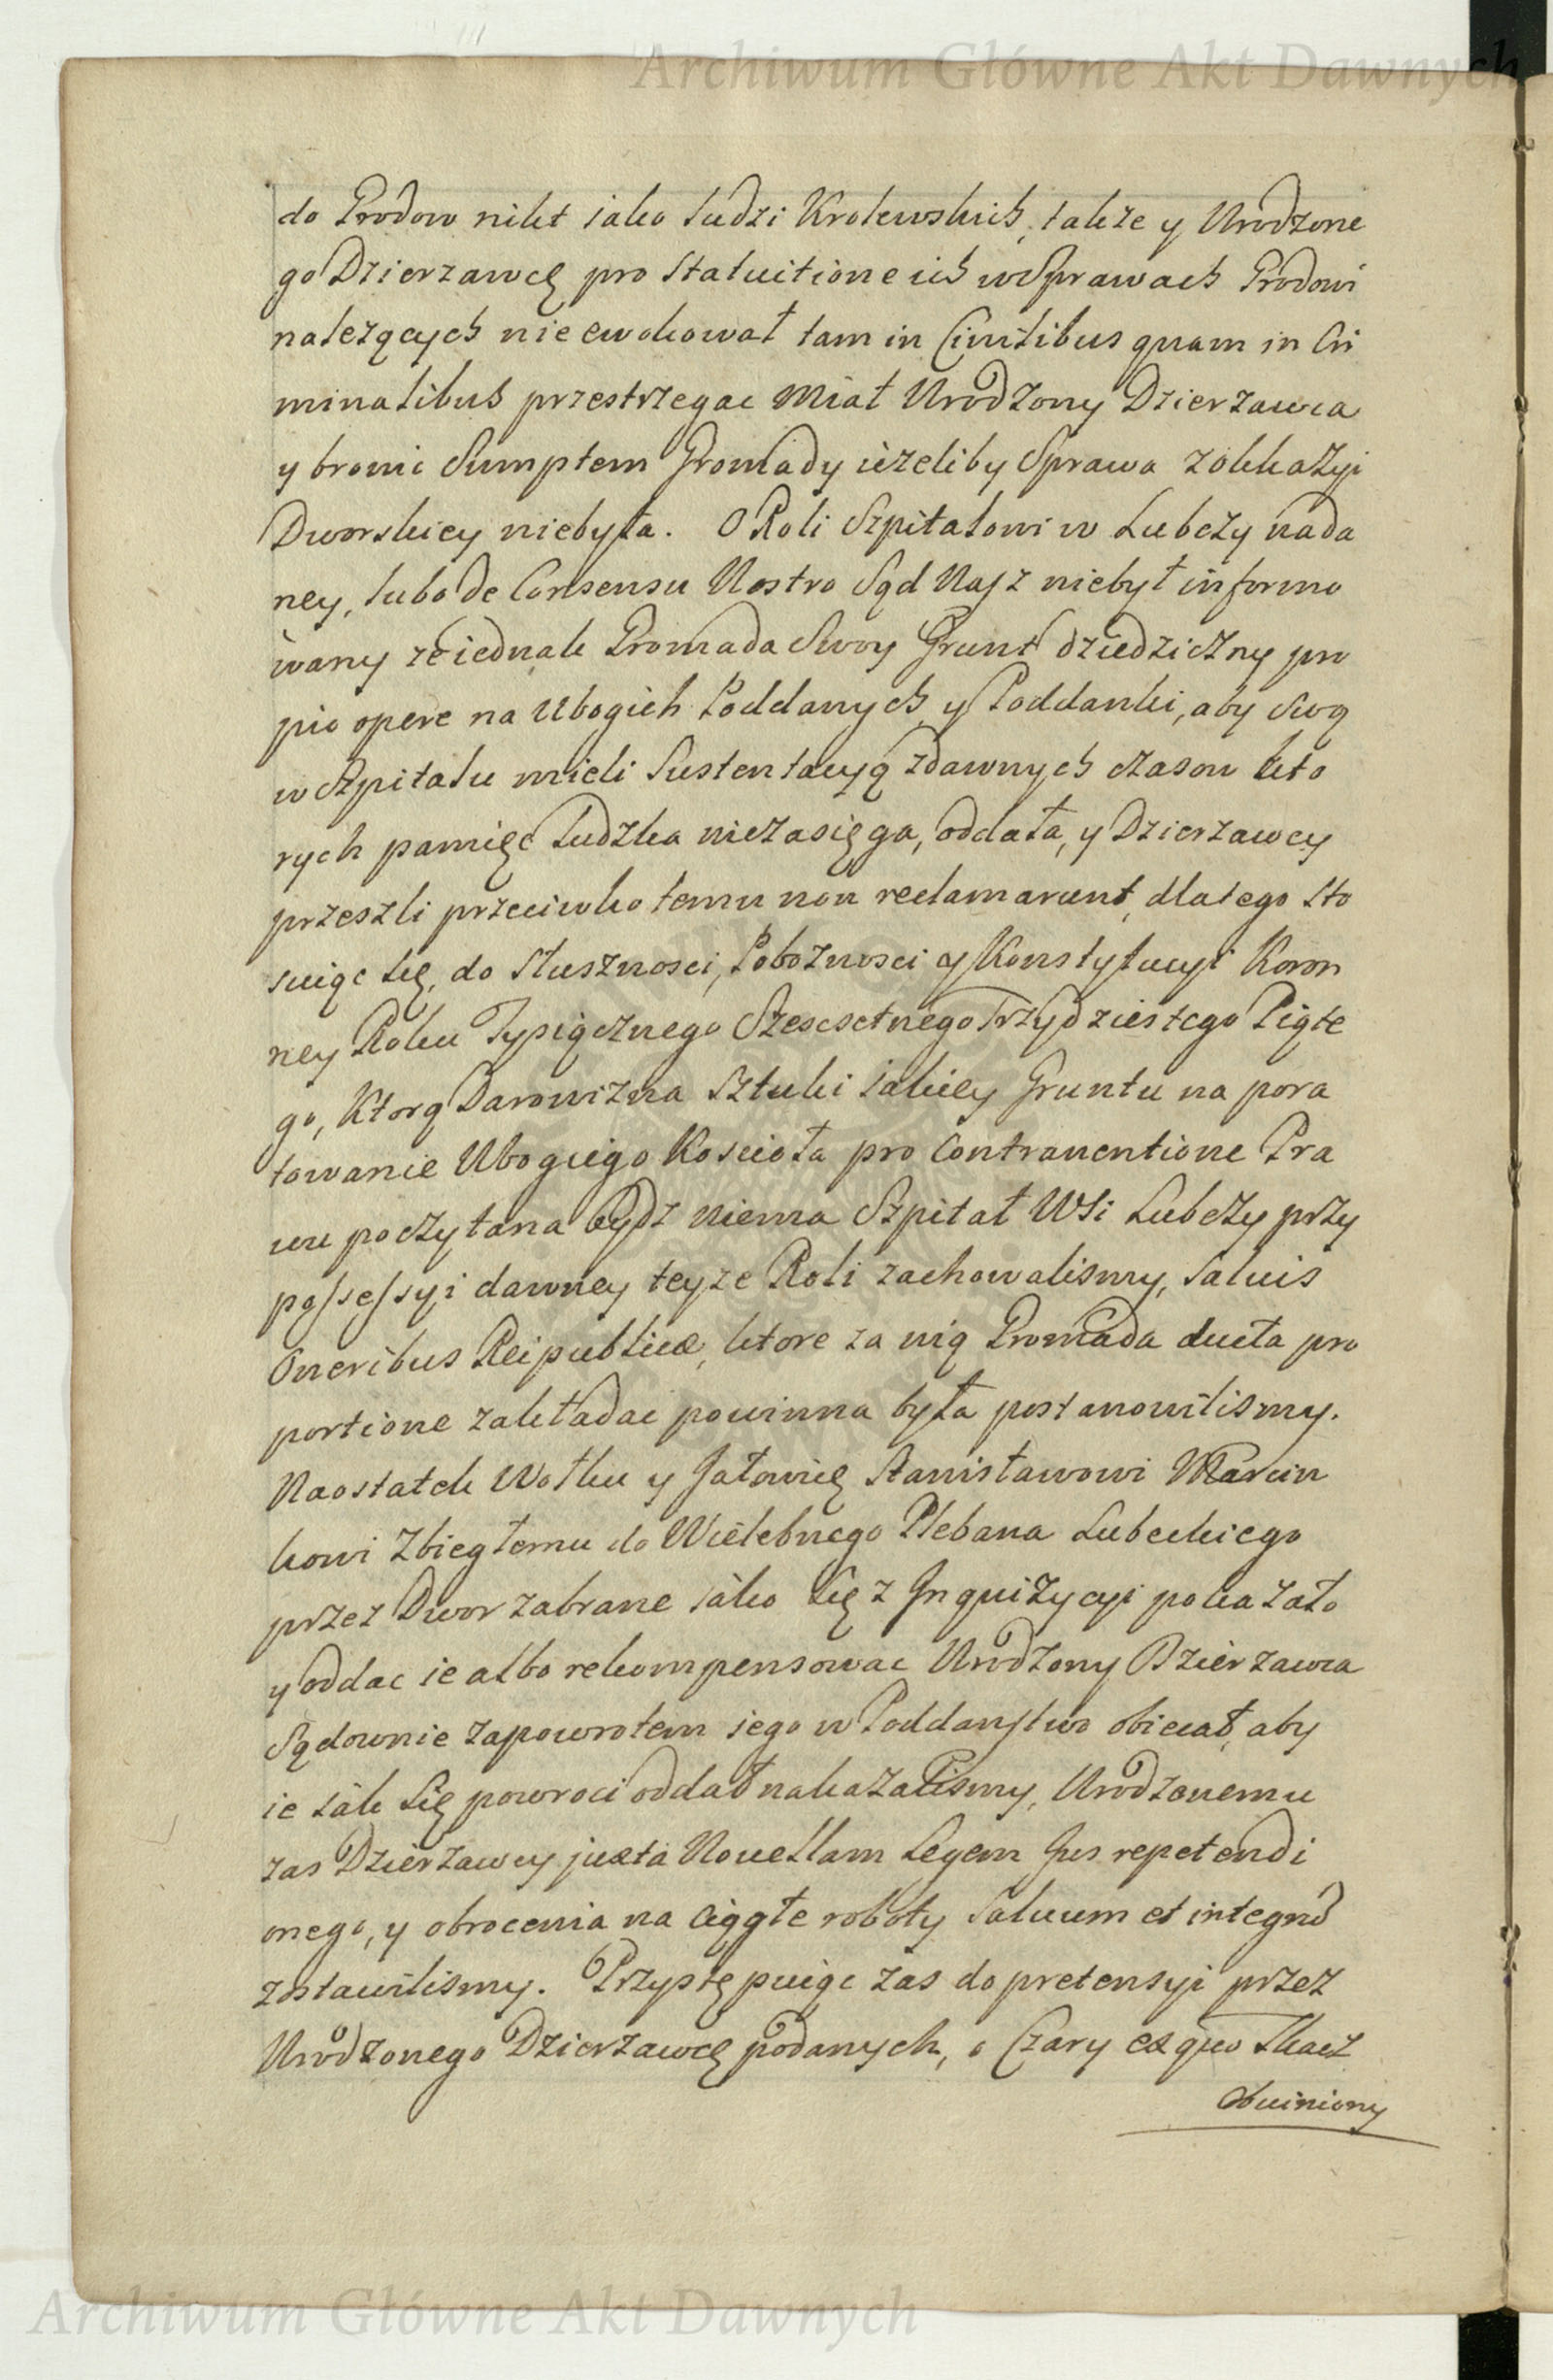 Archiwum Główne Akt Dawnych
do Grodow nikt iako ludzi Krolewskich, także y Urodzone
go Dzierzawcę pro Statuitione ich w Sprawach Grodowi
nalezących nie ewokował tam in Civilibus quam in Cri
minalibus przestrzegac miał Urodzony Dzierzawca
y bronic Sumptem Gromady ieżeliby Sprawa z okkazyi
Dworskiey niebyła. O Roli Szpitalowi w Lubczy nada
ney, lubo de Consensu Nostro Sąd Nasz niebył informo
wany ze iednak Gromada Swoy Grunt dziedziczny pro
pio opere na Ubogich Poddanych y Poddanki, aby Swą
w Szpitalu mieli Sustentacyą zdawnych czasow kto
rych pamięć ludzka niezasięga, oddała, y Dzierzawcy
przeszli przeciwko temu non reclamarunt, dlatego sto
suiąc się, do Słuszności, Pobożności y Konstytucyi Koron
ney Roku Tysiącznego Szescsetnego Trzydziestego Piąte
go, Ktorą Darowizna Sztuki iakiey Gruntu na pora
towanie Ubogiego Kościoła pro Contraventione Pra
wu poczytana bydź niema Szpital Wsi Lubczy przy
possessyi dawney teyże Roli zachowalismy, Salvis
Oneribus Reipublicæ, ktore za nią Gromada ducta pro
portione zakładac powinna była postanowilismy.
Naostatek Wołku y Jałowicę Stanisławowi Marcin
kowi Zbiegłemu do Wielebnego Plebana Lubeckiego
przez Dwor zabrane iako się z Inquizycyi pokazało
y oddac ie albo rekompensowac Urodzony Dzierzawca
Sądownie zapowrotem iego w Poddaństwo obiecał, aby
ie iak się powroci oddał nakazalismy, Urodzonemu
zas Dzierzawcy juxta Novellam Legem Jus repetendi
onego, y obrocenia na ciągłe roboty Salvum et integrũ
zostawilismy. Przystępuiąc zas do pretensyi przez
Urodzonego Dzierzawcę podanych, o Czary ex quo Tkacz
Obwiniony
Archiwum Główne Akt Dawnych